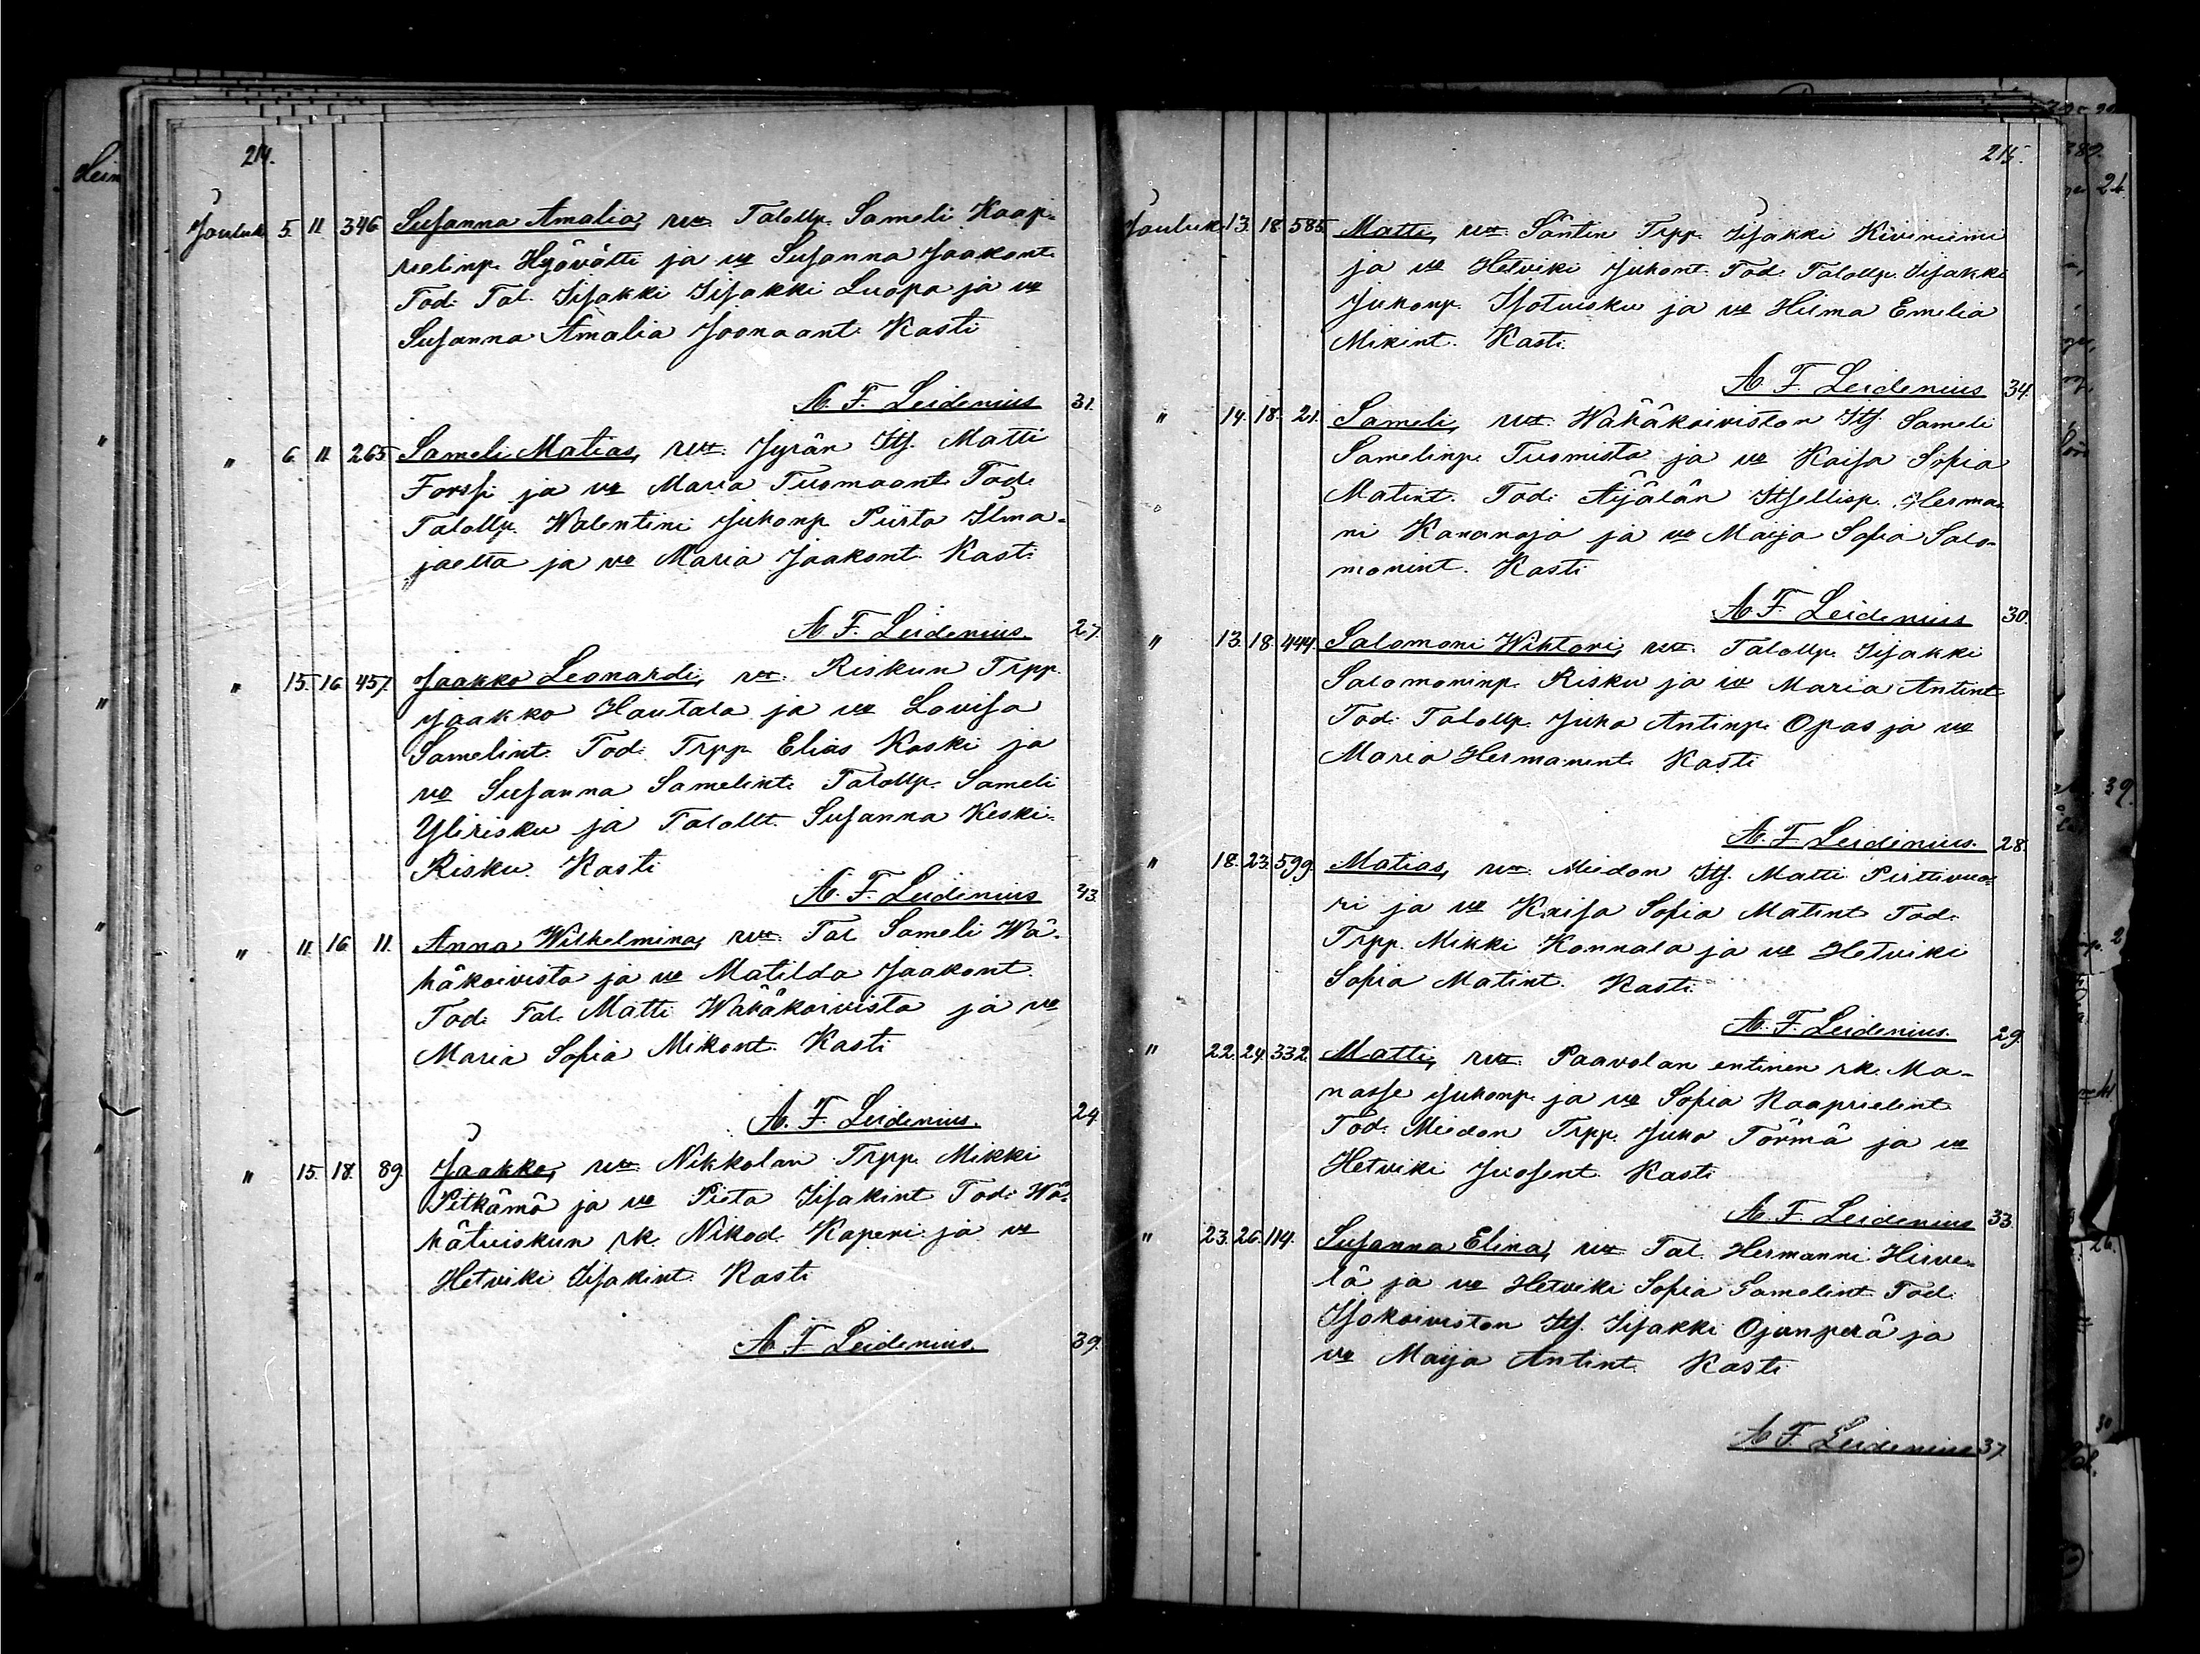 214.
Jouluk. 5. 11. 346. Susanna Amalia, Talollp. Sameli Kaap-
rielinp. Hyövätti ja vo Susanna Jaakont.
Tod. Tal. Iisakki Iisakki Luopa ja vo
Susanna Amalia Joonaant. Kasti
A. F. Leidenius 31.
" 6. 11. 265. Sameli Matias, Jyrän Its. Matti
Forssi ja vo Maria Tuomaant. Tod.
Talollp. Walentini Juhonp. Piirto Ilma-
joelta ja vo Maria Jaakont. Kasti
A. F. Leidenius. 27.
" 15. 16. 457. Jaakko Leonardi, Riskun Trpp.
Jaakko Hautala ja vo Lovisa
Samelint. Tod. Trpp. Elias Koski ja
vo Susanna Samelint. Talollp. Sameli
Ylirisku ja Talollt. Susanna Keski-
Risku. Kasti
A. F. Leidenius 43.
" 11. 16. 11. Anna Wilhelmina, Tal. Sameli Wä-
häkoivisto ja vo Matilda Jaakont.
Tod. Tal. Matti Wähäkoivisto ja vo
Maria Sofia Mikont. Kasti
A. F. Leidenius. 24.
" 15. 18. 89. Jaakko, Nikkolan Trpp. Mikki
Pitkämö ja vo Pieta Iisakint. Tod. Wä-
hätuiskun rk. Nikod. Kaperi ja vo
Hetviki Iisakint. Kasti
A. F. Leidenius. 39.
215.
Jouluk. 13. 18. 585. Matti, Säntin Trpp. Iisakki Kiviniemi
ja vo Hetviki Juhont. Tod. Talollp. Iisakki
Juhonp. Isotuisku ja vo Hilma Emelia
Mikint. Kasti.
A. F. Leidenius 34.
" 14. 18. 21. Sameli, Wähäkoiviston Its. Sameli
Samelinp. Tuomisto ja vo Kaisa Sofia
Matint. Tod. Äijälän Itsellisp. Herma-
ni Kananoja ja vo Maija Sofia Salo-
monint. Kasti
A. F. Leidenius 30.
" 13. 18. 444. Salomoni Wihtori, Talollp. Iisakki
Salomoninp. Risku ja vo Maria Antint.
Tod. Talollp. Juha Antinp. Opas ja vo
Maria Hermanint. Kasti
A. F. Leidenius. 28.
" 18. 23. 599. Matias, Miedon Its. Matti Pirttivuo-
ri ja vo Kaisa Sofia Matint. Tod.
Trpp. Mikki Konnala ja vo Hetviki
Sofia Matint. Kasti
A. F. Leidenius. 29.
" 22. 24. 332. Matti, Paavolan entinen rk. Ma-
nasse Juhonp. ja vo Sofia Kaaprielint.
Tod. Miedon Trpp. Juha Törmä ja vo
Hetviki Juosent. Kasti
A. F. Leidenius 33.
" 23. 26. 114. Susanna Elina, Tal. Hermanni Hirve-
lä ja vo Hetviki Sofia Samelint. Tod.
Isokoiviston Its. Iisakki Ojanperä ja
vo Maija Antint. Kasti
A. F. Leidenius 37.